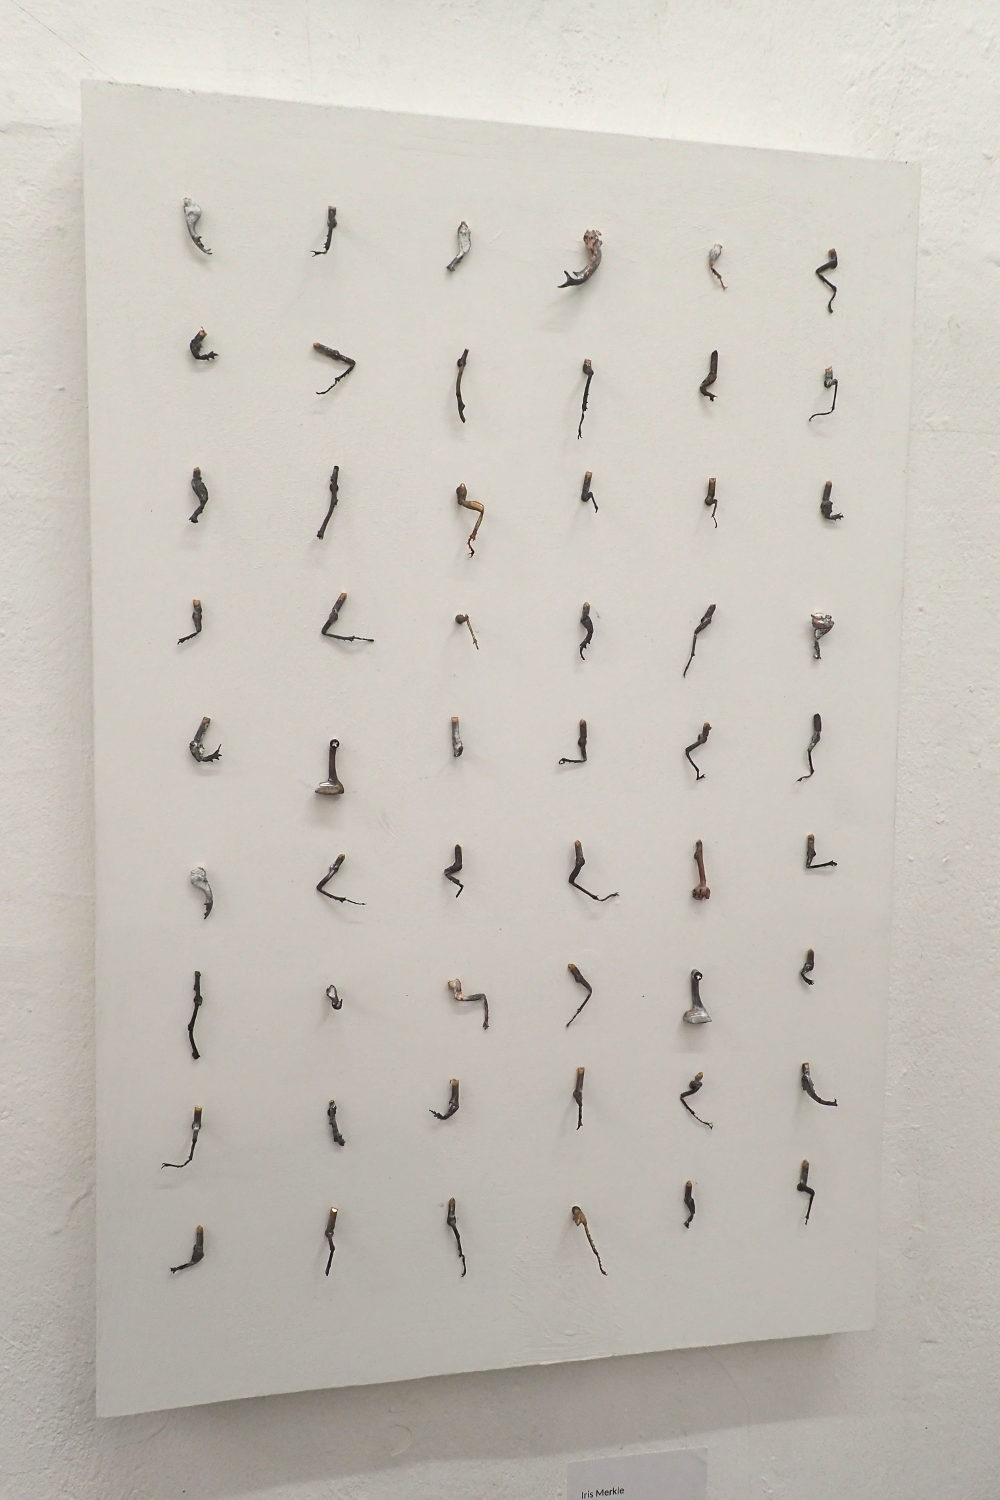 Iris Merkle